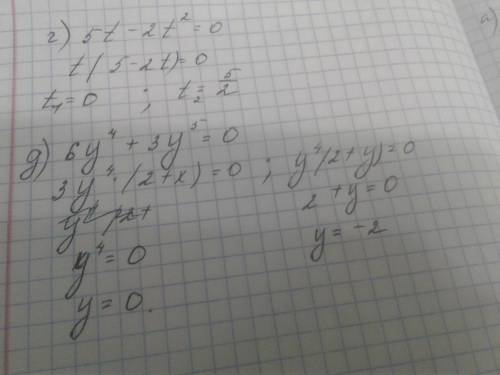 г) 5t - 2t² = 0
t(5-2t)=0
t₁=0 ; t₂= 5/2
д) 6y⁴ + 3y⁵ = 0
3y⁴ · (2+x) = 0 ; y⁴(2+y)=0
2 + y = 0
y⁴ = 0
y = -2
y = 0.
а)